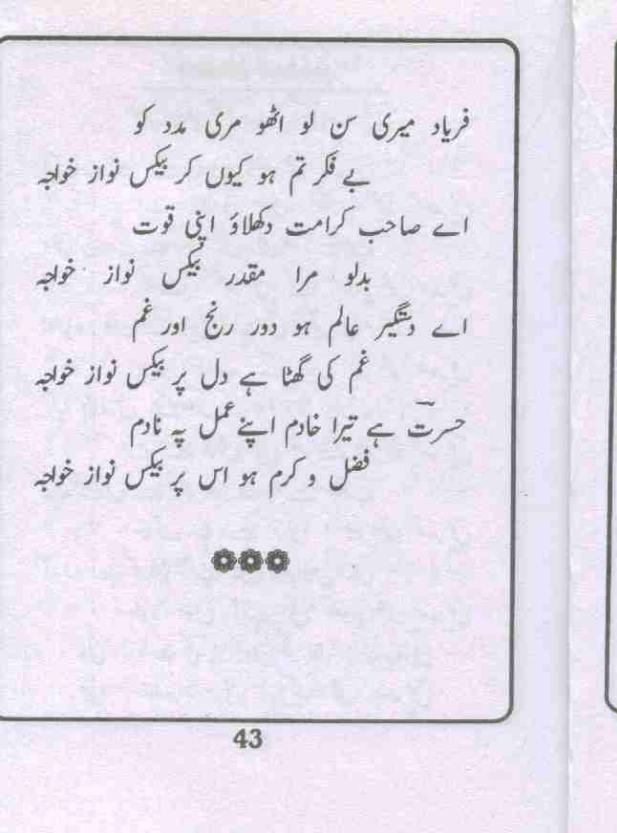 فریاد میری سن لو اٹھو مری مدد کو
بے فکر تم ہو کیوں کر بیکس نواز خواجہ
اے صاحب کرامت دکھلاؤ اپنی قوت
بدلو مرا مقدر بیکس نواز خواجہ
اے دستگیر عالم ہو دور رنج اور غم
غم کی گھٹا ہے دل پر بیکس نواز خواجہ
حسرتؔ ہے تیرا خادم اپنے عمل پہ نادم
فضل و کرم ہو اس پر بیکس نواز خواجہ
43